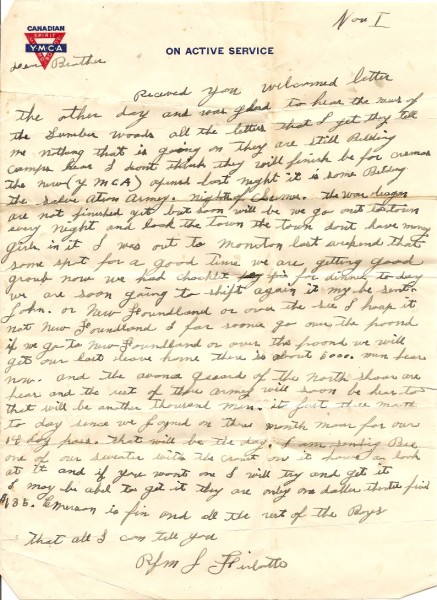 CANADIAN
SPIRIT
YMCA
Nov I
ON ACTIVE SERVICE
dear Brother
Recived you welcomed letter
the other day and was glord to hear the news of
the Lumber Woods all the letters that I get they tell
me nothing that is going on they are still Bilding
camps hear I dont think they will finish be for
the new (YMCA) opened last night it is some Bilding
the Salve ation Army. Nights of the war
are not finished yet but soon will be we go out to town
every night and look the town the town dont have many
girls in it I was out to Moncton last wekend that
some spot for a good time we are getting good
groub now we had pie for dinner to day
we are soon going to shift again it my be sent
John. or New Foundland or over the sie I hoap it
not New Foundland I far sooner go over the poond
if we go to New Foundland or over the poond we will
get our last leave home there is about 6000. men hear
now. and the gaard of the North shoar are
hear and the rest of thar army will soon be hear to
that will be anther thousand men. it just three month
to day since we joyned on three month moar for our
14 day pass. That will be the day. I am sending Bee
one of our sweater with the crest on it have an look
at it and if you wonts one I will try and get it
I may be abel to get it they are only one daller thirtie five
$1.35. Emerson is fin and all the rest of the Boys
that all I can tell you
Rfm J